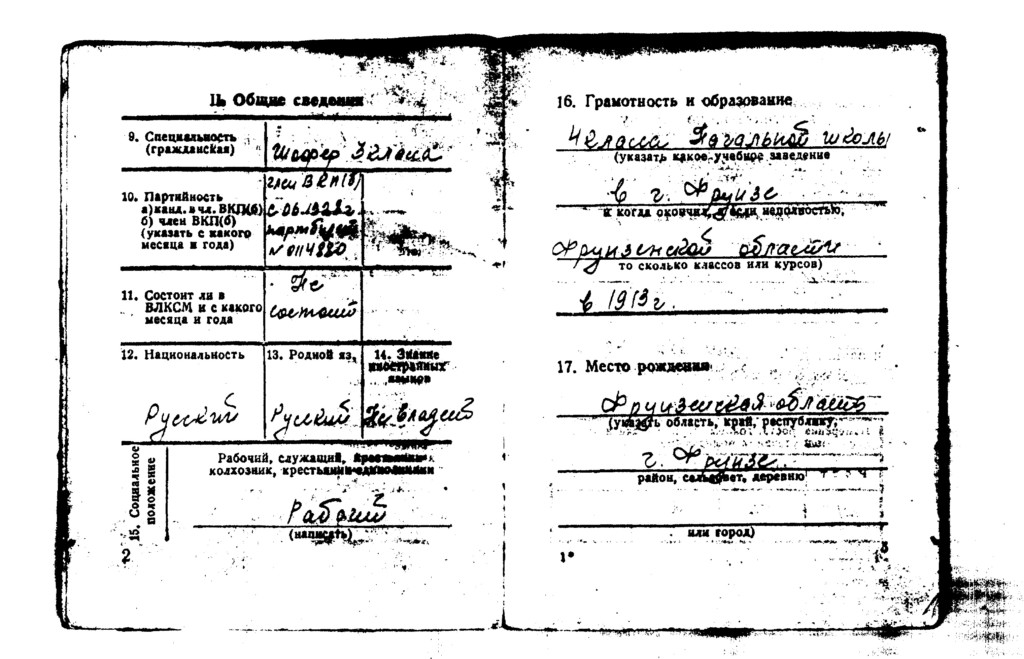 II. Общие сведения
9. Специальность
(гражданская)
Шофер 3 класса
10. Партийность
а) канд. в чл. ВКП(б)
б) член ВКП(б)
(указать с какого
месяца и года)
член ВКП(б)
с 06.1928 г.
партбилет
№ 0114880
11. Состоит ли в
ВЛКСМ и с какого
месяца и года
Не
состоит
12. Национальность
Русский
13. Родной яз.
Русский
14. Знание
иностранных
языков
Не владеет
15. Социальное
положение
Рабочий, служащий,
колхозник, крестьянин-единоличник
Рабочий
(написать)
2
16. Грамотность и образование
4 класса Начальной школы
(указать какое учебное заведение
в г. Фрунзе
и когда окончил, а если неполностью,
Фрунзенской области
то сколько классов или курсов)
в 1913 г.
17. Место рождения
Фрунзенская область
(указать область, край, республику,
г. Фрунзе
район, сельсовет, деревню
или город)
1*
3